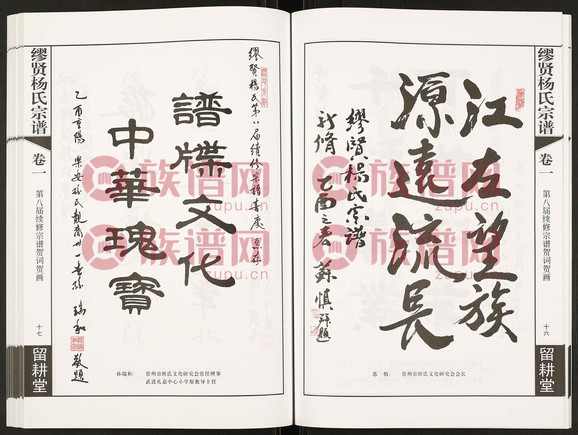 缪贤杨氏宗谱
卷一
第八届续修宗谱贺词贺画
十六
留耕堂
江左望族
源远流长
缪贤杨氏宗谱
新修 乙酉之春 苏慎 题
苏慎: 常州市姓氏文化研究会会长
缪贤杨氏第八届续修宗谱喜庆
譜牒文化
中華瑰寶
乙酉重陽 樂安孫氏 瑞和 敬題
孙瑞和: 常州市姓氏文化研究会常任理事
武进礼嘉中心小学原教导主任
缪贤杨氏宗谱
卷一
第八届续修宗谱贺词贺画
十七
留耕堂
族谱网
zupu.cn
族谱网
zupu.cn